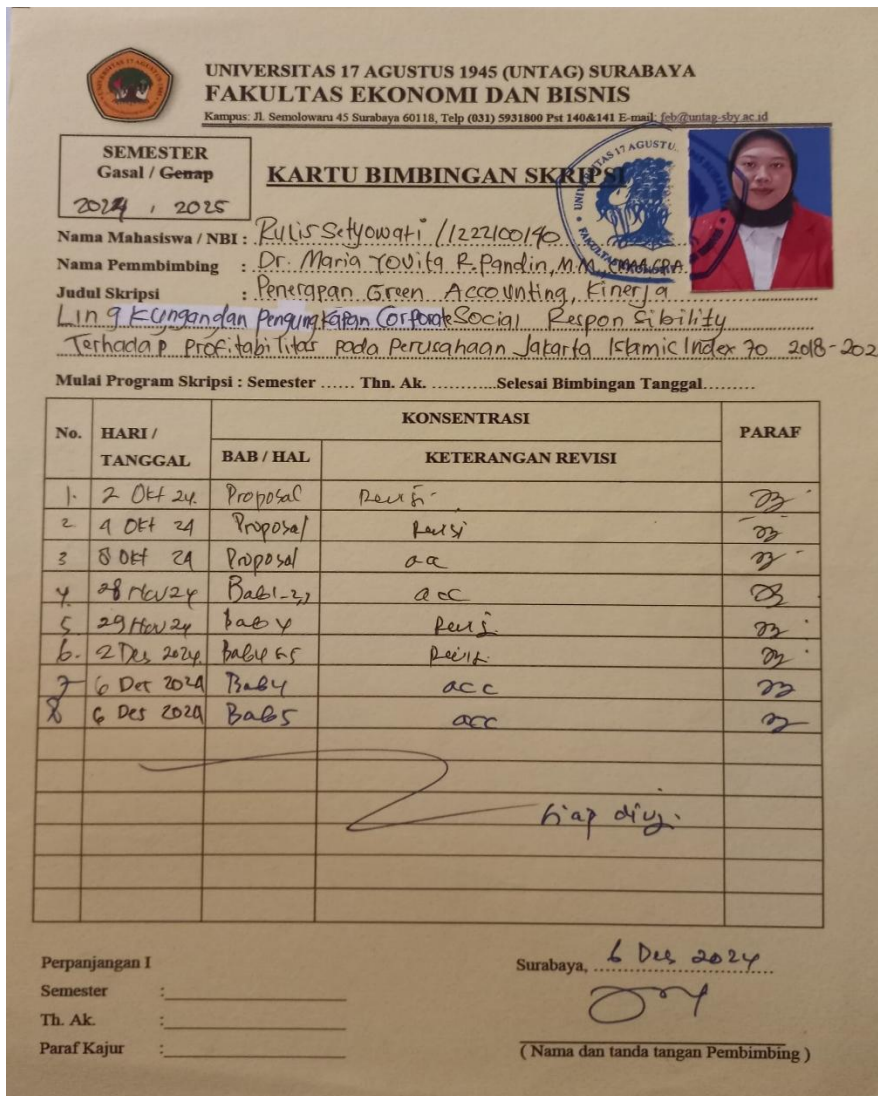 UNIVERSITAS 17 AGUSTUS 1945 (UNTAG) SURABAYA
FAKULTAS EKONOMI DAN BISNIS
Kampus: Jl. Semolowaru 45 Surabaya 60118, Telp (031) 5931800 Pst 140&141 E-mail: feb@untag-sby.ac.id
SEMESTER
Gasal / Genap
2024 , 2025
KARTU BIMBINGAN SKRIPSI
Nama Mahasiswa / NBI : Rulis Setyowati / 1222100140
Nama Pemmbimbing : Dr. Maria Yovita R. Pandin, M.M., CMA, CPA
Judul Skripsi : Penerapan Green Accounting, Kinerja
Lingkungan dan Pengungkapan Corporate Social Responsibility
Terhadap Profitabilitas pada Perusahaan Jakarta Islamic Index 70 2018-202
Mulai Program Skripsi : Semester ...... Thn. Ak. ...........Selesai Bimbingan Tanggal.........
No. HARI / TANGGAL KONSENTRASI PARAF
BAB / HAL KETERANGAN REVISI
1. 2 Okt 24. Proposal Revisi
2 4 Okt 24 Proposal Revisi
3 8 Okt 24 Proposal
4. 28 Nov 24 Bab 1-3 acc
5 29 Nov 24 Bab 4 Revisi
6. 2 Des 2024. Bab 4 & 5 Revisi
7 6 Des 2024 Bab 4 acc
8 6 Des 2024 Bab 5 acc
Siap diuji.
Perpanjangan I
Semester :
Th. Ak. :
Paraf Kajur :
Surabaya, 6 Des 2024
( Nama dan tanda tangan Pembimbing )